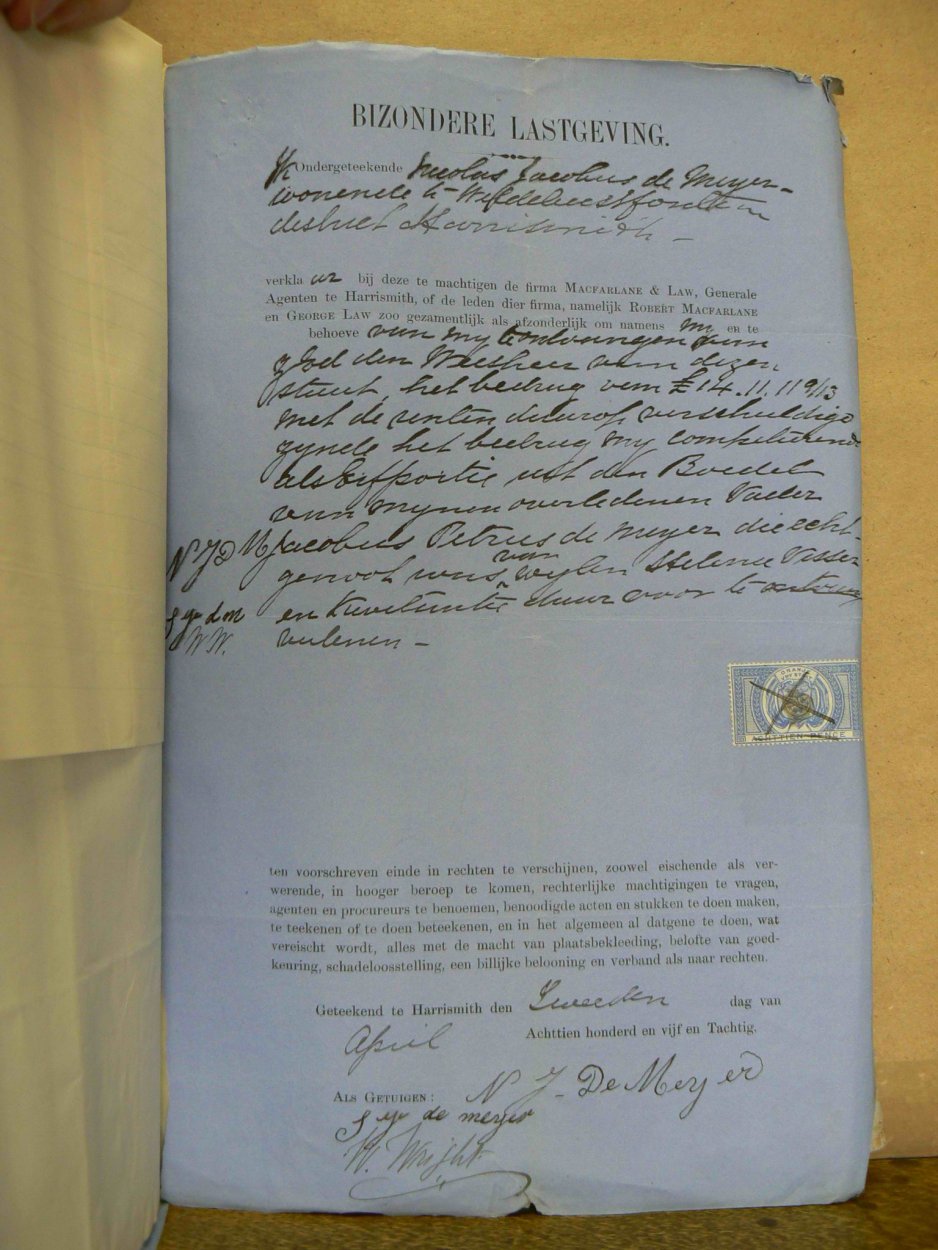 BIZONDERE LASTGEVING.
Ik Ondergeteekende Nicolas Jacobus de Meyer –
wonende te Wildebeestfontein
district Harrismith –
verklaar bij deze te machtigen de firma MACFARLANE & LAW, Generale
Agenten te Harrismith, of de leden dier firma, namelijk ROBERT MACFARLANE
en GEORGE LAW zoo gezamentlijk als afzonderlijk om namens my en te
behoeve van my te ontvangen van
den Weesheer van dezen
staat, het bedrag van £14.11.11 9/13
met de renten daarop verschuldigd
zynde het bedrag my competerende
als Erfportie uit den Boedel
van mynen overledenen Vader
N J D M Jacobus Petrus de Meyer die echt-
genoot was van wylen Helena Visser
S yp d m en kwitantie daar voor te
W W. verlenen –
ORANJE
ACHTTIEN PENCE
ten voorschreven einde in rechten te verschijnen, zoowel eischende als ver-
werende, in hooger beroep te komen, rechterlijke machtigingen te vragen,
agenten en procureurs te benoemen, benoodigde acten en stukken te doen maken,
te teekenen of te doen beteekenen, en in het algemeen al datgene te doen, wat
vereischt wordt, alles met de macht van plaatsbekleeding, belofte van goed-
keuring, schadeloosstelling, een billijke belooning en verband als naar rechten.
Geteekend te Harrismith den Tweeden dag van
April Achttien honderd en vijf en Tachtig.
N J. De Meyer
ALS GETUIGEN:
S yp de meyer
W. Wright